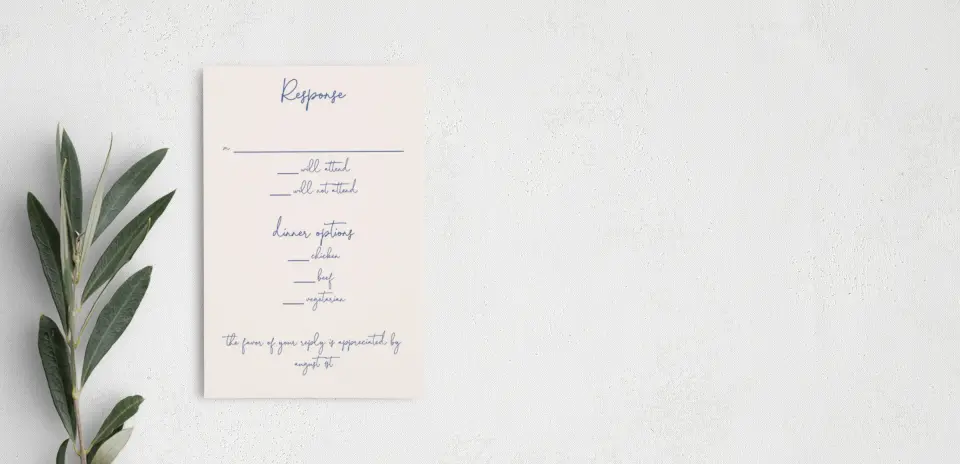 Response
m
____will attend
____will not attend
dinner options
____chicken
____beef
____vegetarian
the favor of your reply is appreciated by
august 1st